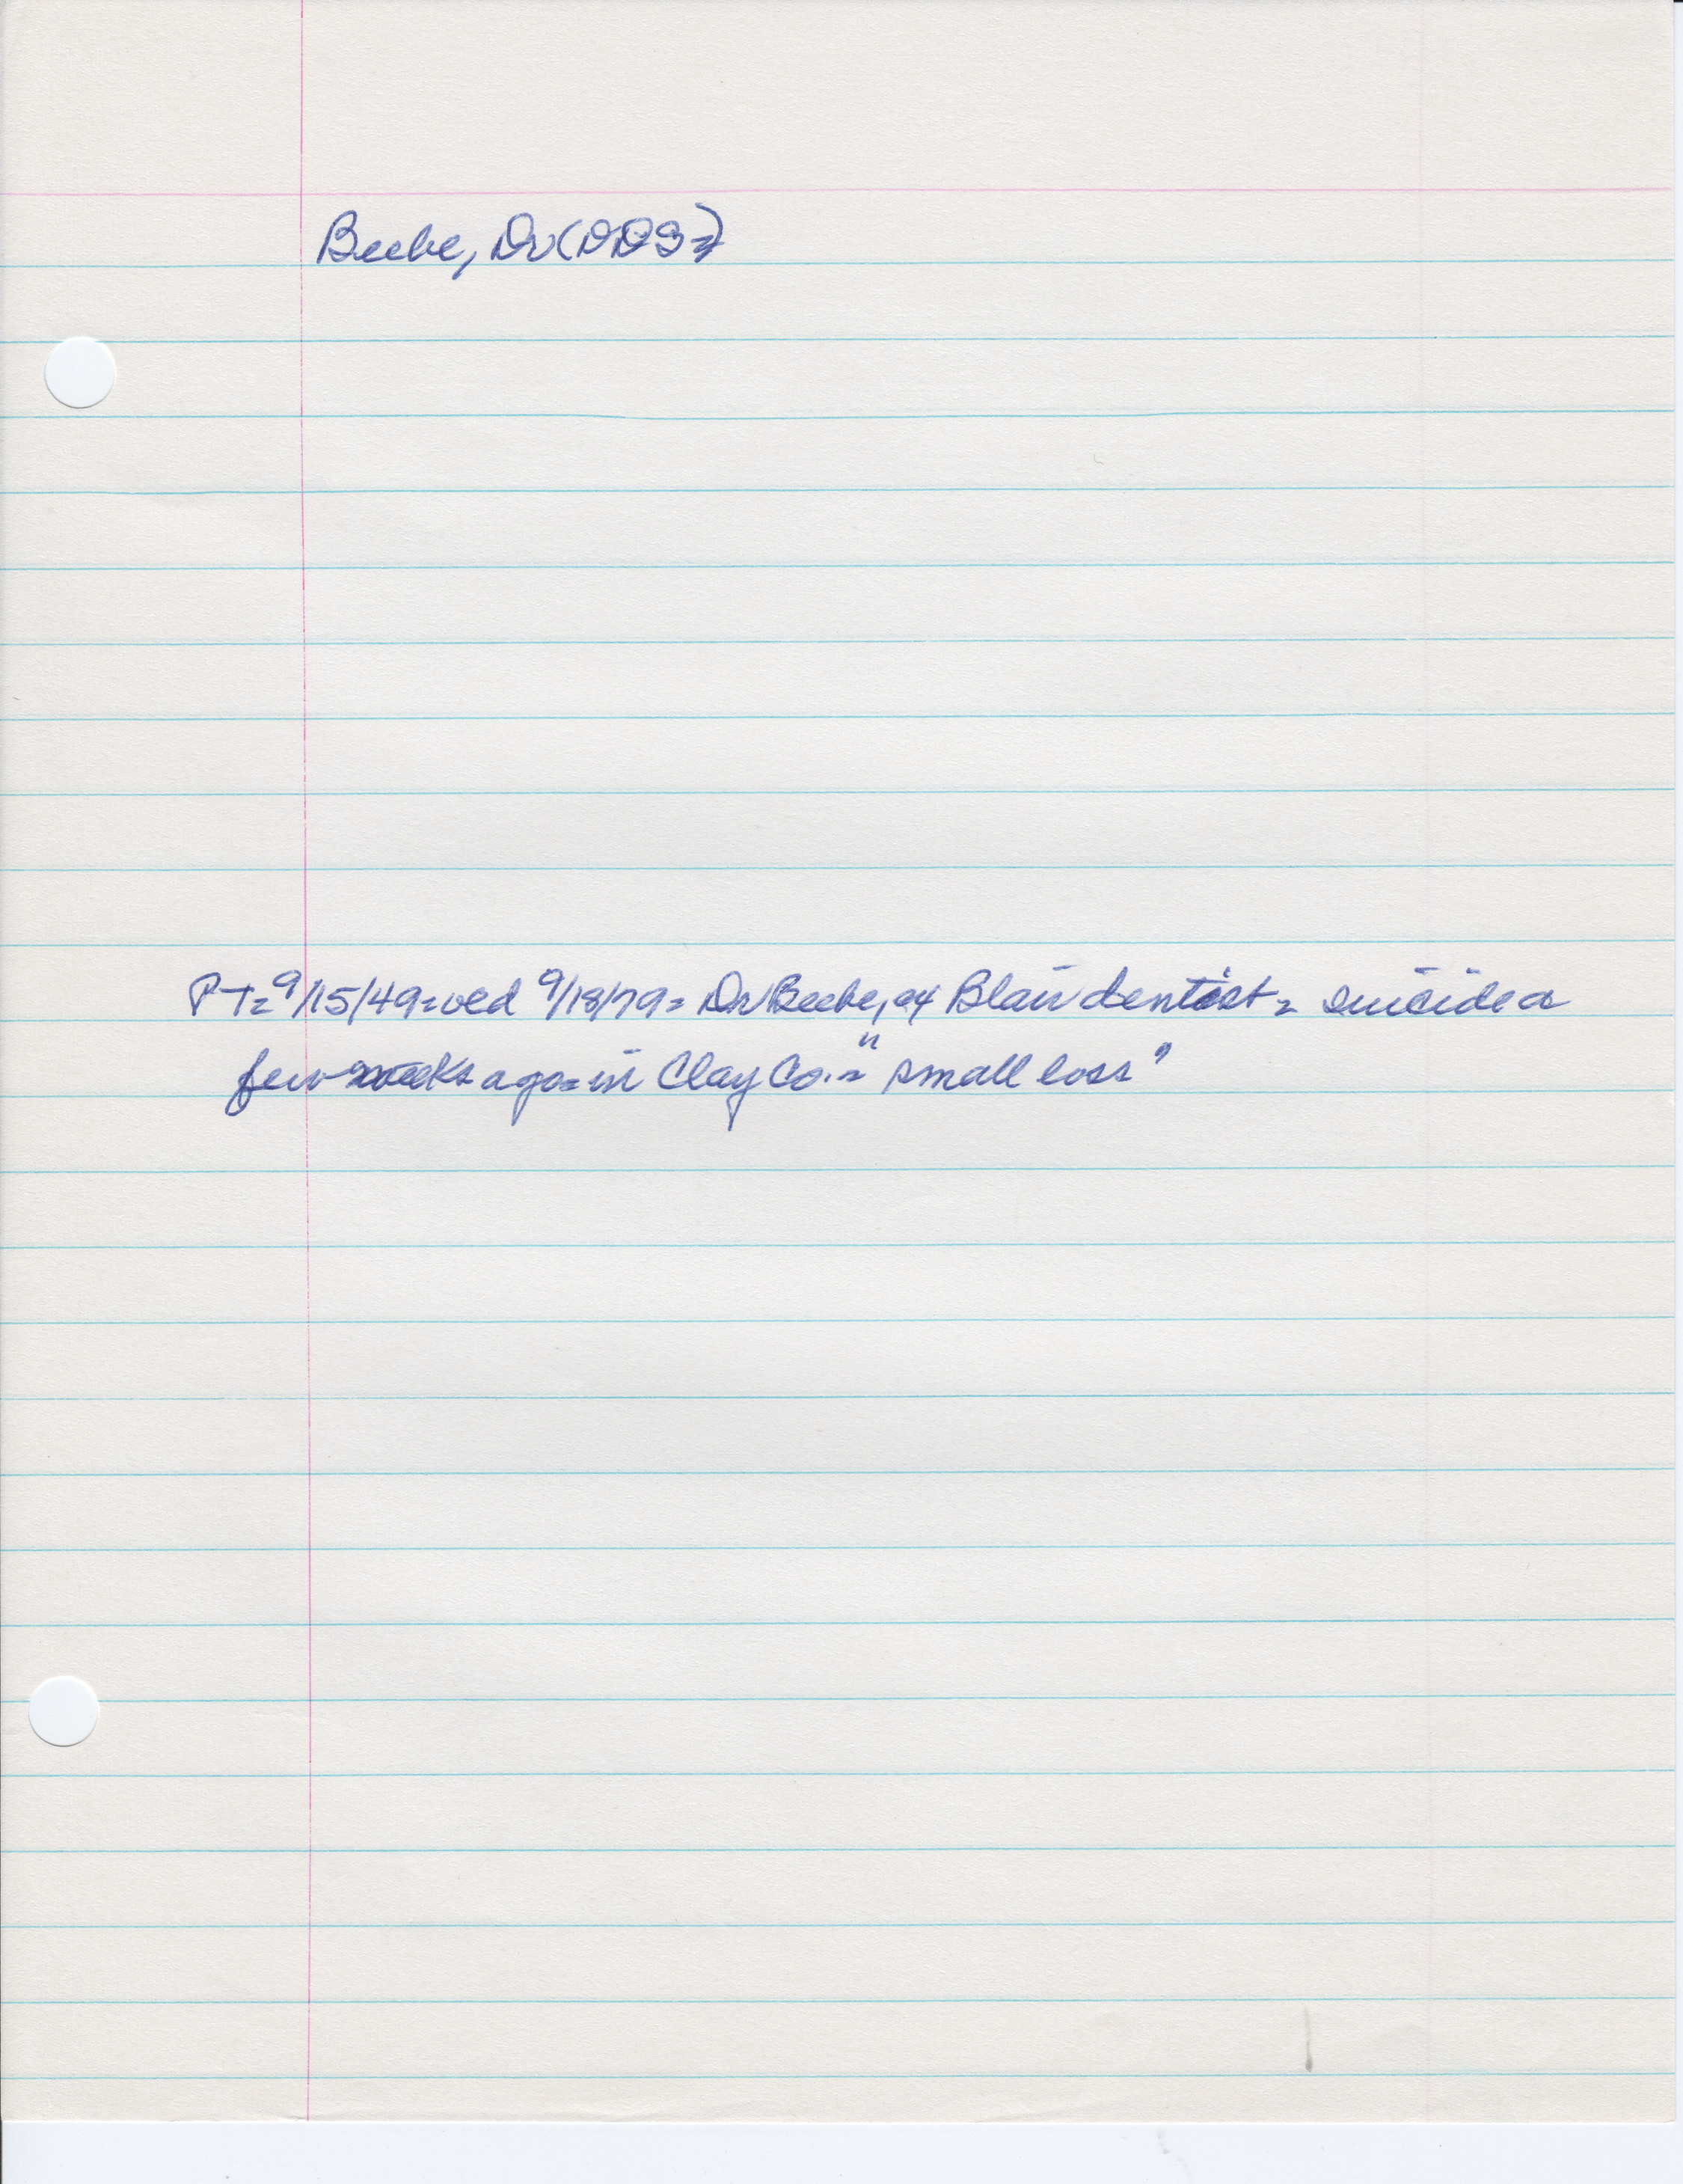 Beebe, Dr (DDS=)
PT=9/15/49=ved 9/18/79= Dr Beebe, ex Blair dentist = suicide a
few weeks ago=in Clay Co.= "small loss"